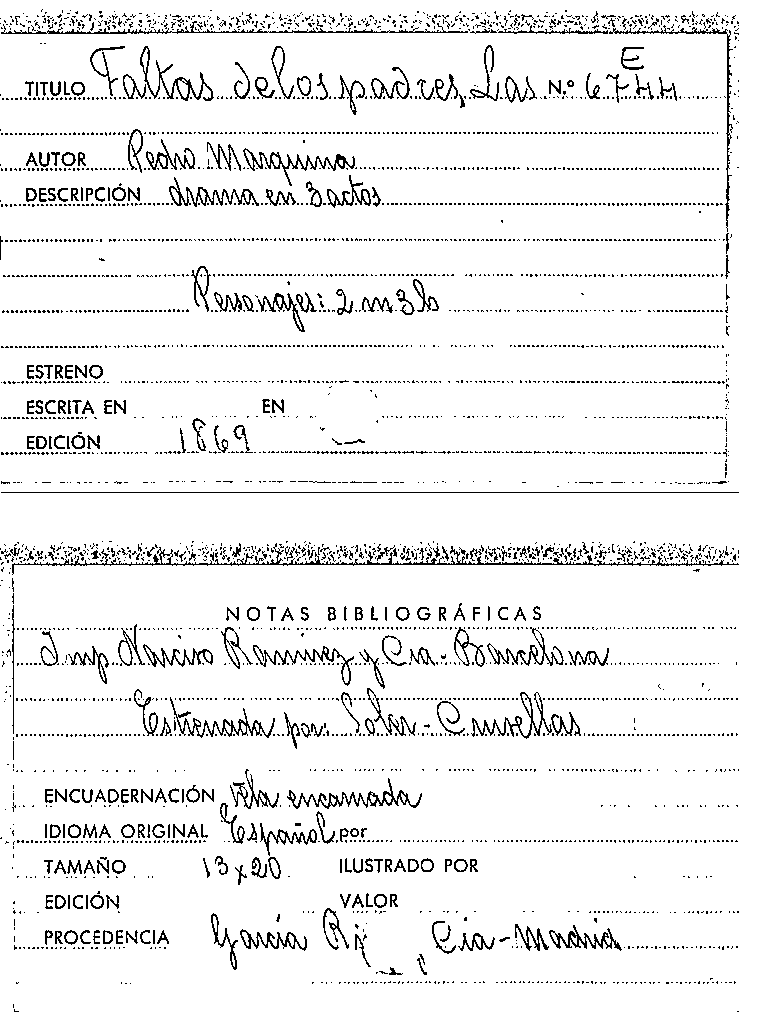 E
TITULO Faltas de los padres, Las N.º 6744
AUTOR Pedro Marquina
DESCRIPCIÓN drama en 3 actos
Personajes: 2 m 3 h
ESTRENO
ESCRITA EN EN
EDICIÓN 1869
NOTAS BIBLIOGRÁFICAS
Imp Narciso Ramirez y Cia. Barcelona
Estrenada por: Soler - Cruellas
ENCUADERNACIÓN Tela encarnada
IDIOMA ORIGINAL Español por
TAMAÑO 13x20 ILUSTRADO POR
EDICIÓN VALOR
PROCEDENCIA García Cia - Madrid